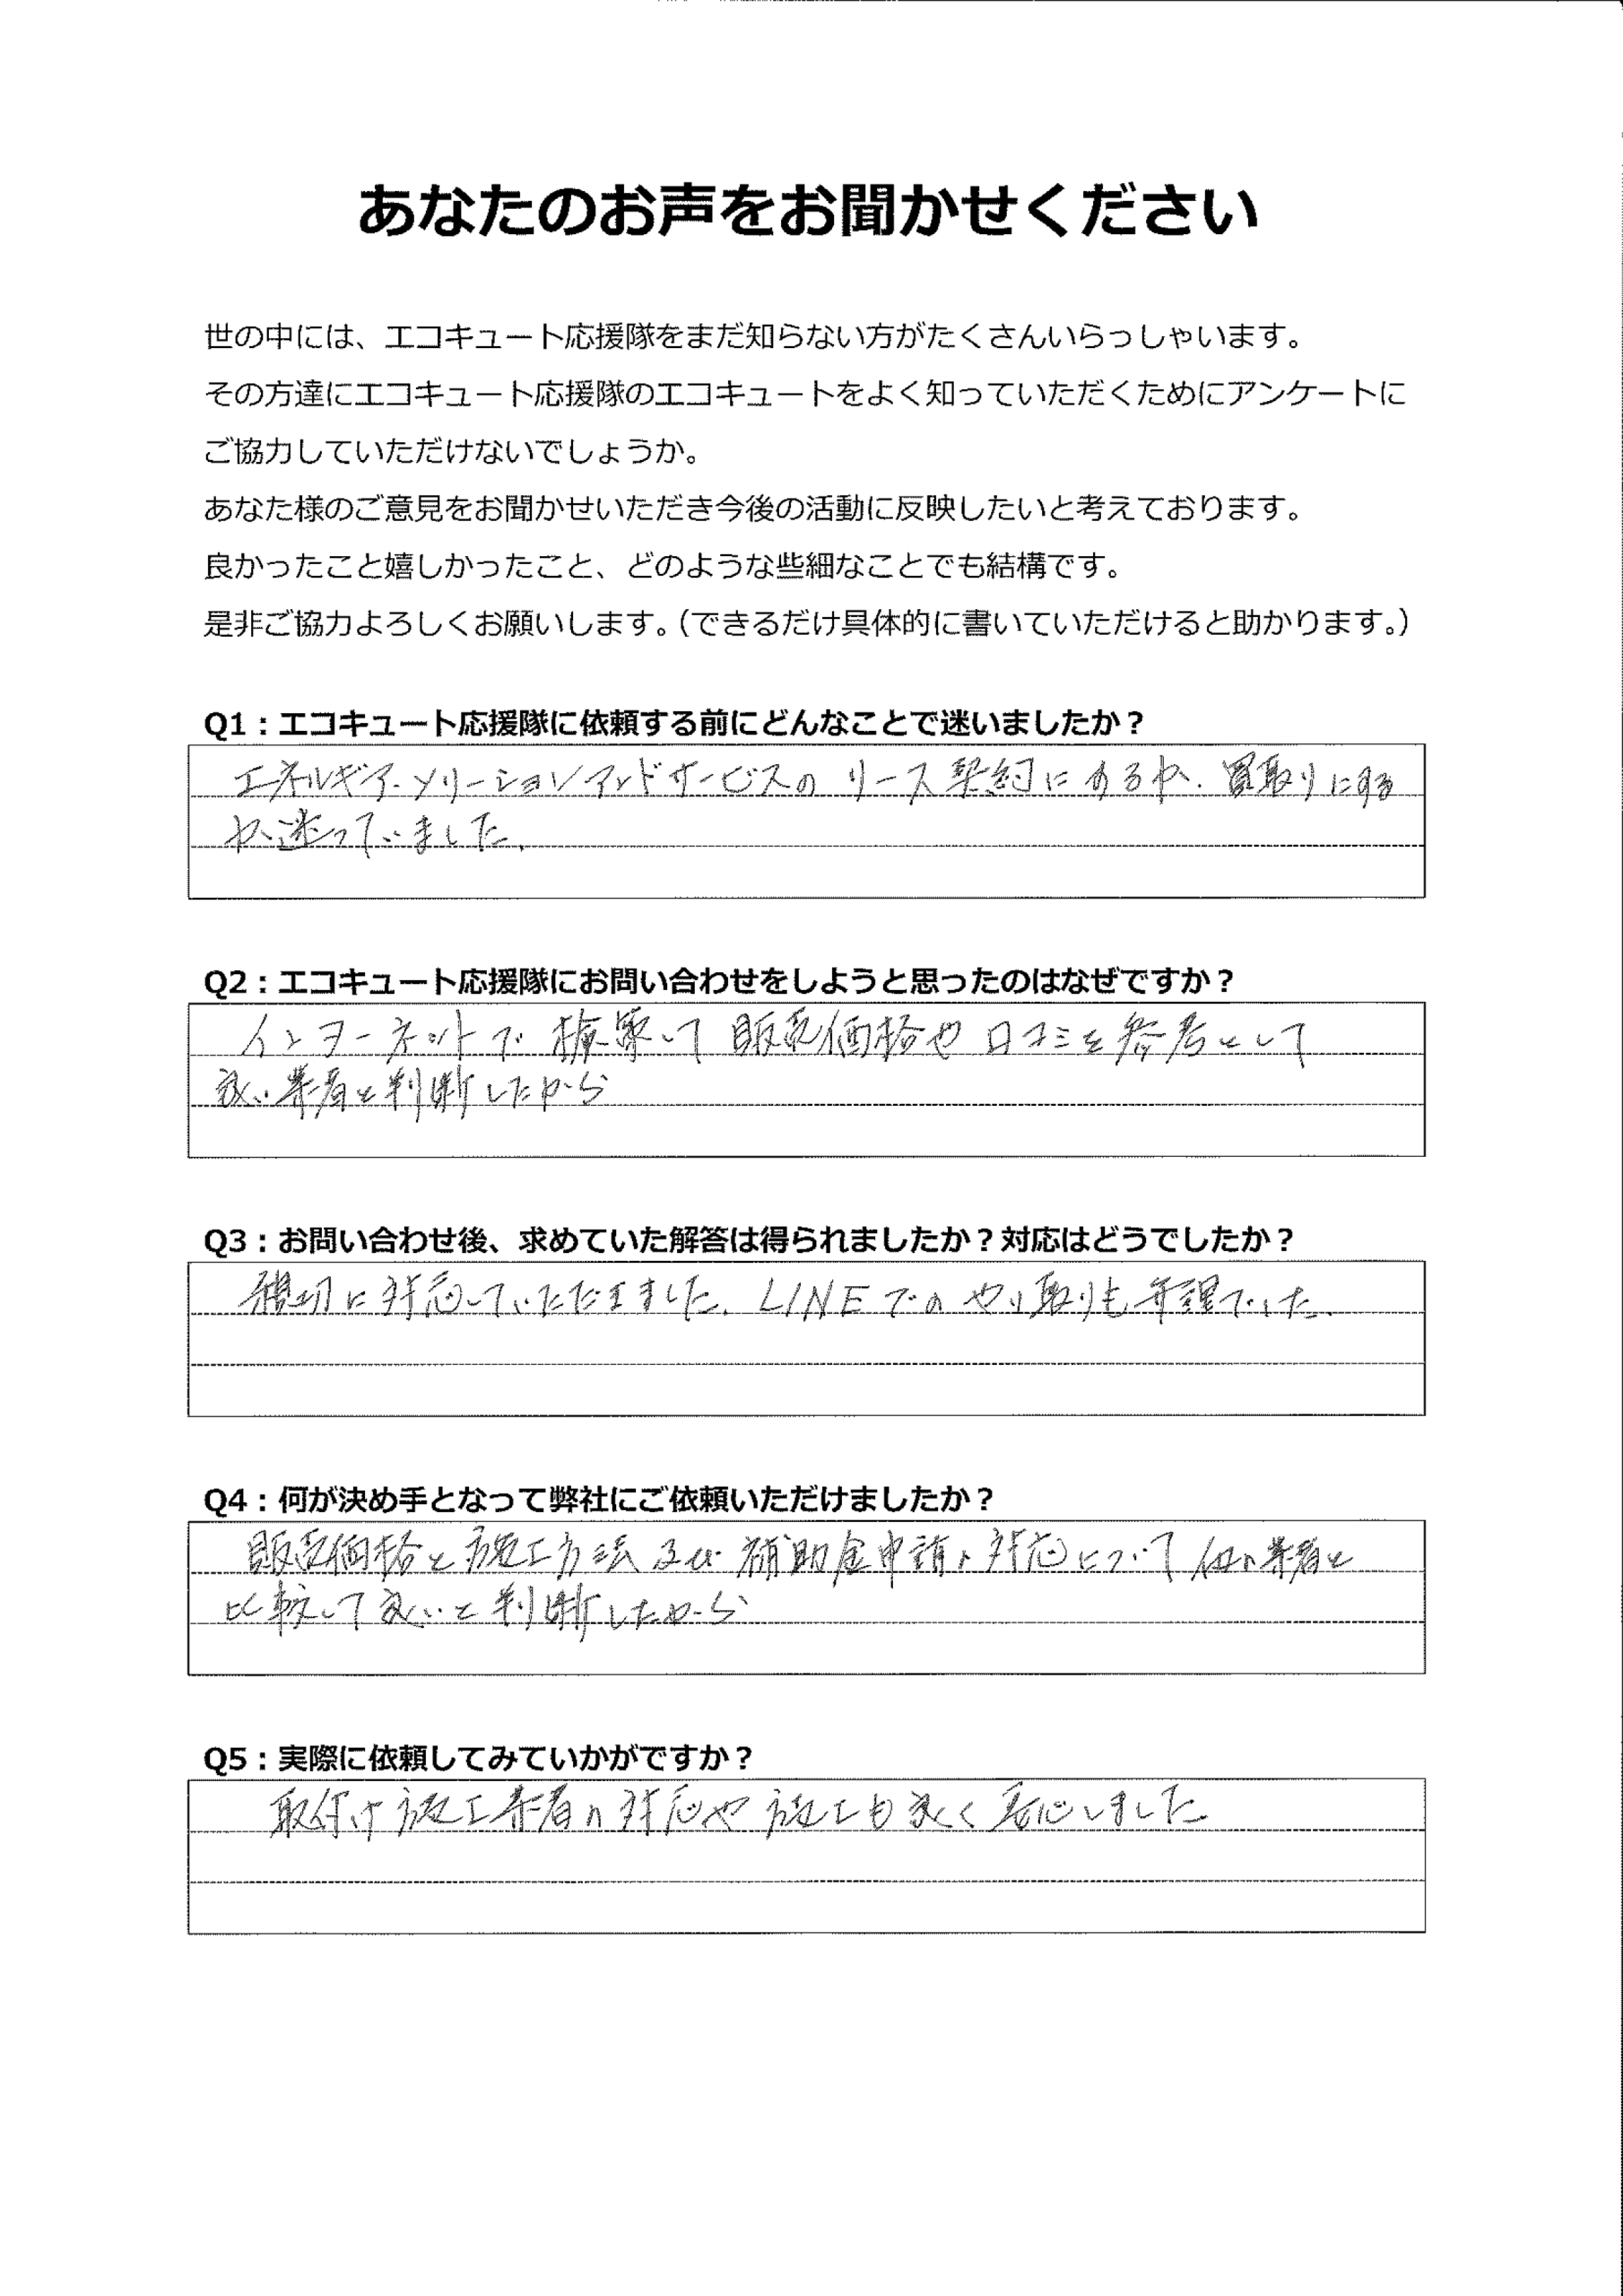 あなたのお声をお聞かせください
世の中には、エコキュート応援隊をまだ知らない方がたくさんいらっしゃいます。
その方達にエコキュート応援隊のエコキュートをよく知っていただくためにアンケートに
ご協力していただけないでしょうか。
あなた様のご意見をお聞かせいただき今後の活動に反映したいと考えております。
良かったこと嬉しかったこと、どのような些細なことでも結構です。
是非ご協力よろしくお願いします。（できるだけ具体的に書いていただけると助かります。）
Q1：エコキュート応援隊に依頼する前にどんなことで迷いましたか？
エネルギア・ソリーションアンドサービスの リース契約にするか、買取りにする
か迷っていました。
Q2：エコキュート応援隊にお問い合わせをしようと思ったのはなぜですか？
インターネットで検索して販売価格や口コミを参考として
良い業者と判断したから
Q3：お問い合わせ後、求めていた解答は得られましたか？対応はどうでしたか？
親切に対応していただきました。LINEでのやり取りも
Q4：何が決め手となって弊社にご依頼いただけましたか？
販売価格と施工方法及び補助金申請の対応について他の業者と
比較して良いと判断したから
Q5：実際に依頼してみていかがですか？
取付け施工業者の対応や施工も良く安心しました